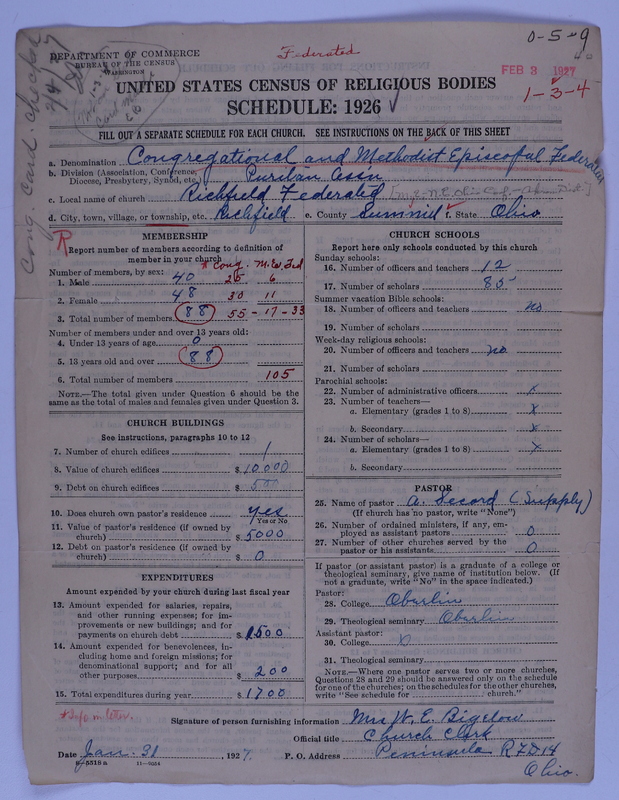 DEPARTMENT OF COMMERCE
BUREAU OF THE CENSUS
WASHINGTON
Federated
0-5-9
FEB 3 1927
1-3-4
Cong card. checked
UNITED STATES CENSUS OF RELIGIOUS BODIES
SCHEDULE: 1926 ✓
FILL OUT A SEPARATE SCHEDULE FOR EACH CHURCH. SEE INSTRUCTIONS ON THE BACK OF THIS SHEET
a. Denomination Congregational and Methodist Episcopal Federated
b. Division (Association, Conference, Diocese, Presbytery, Synod, etc. Puritan Assn
c. Local name of church Richfield Federated
d. City, town, village, or township, etc. Richfield e. County Summit f. State Ohio
R
MEMBERSHIP
Report number of members according to definition of
member in your church
* Cong. M.E. Fed
Number of members, by sex:
1. Male 40 25 6
2. Female 48 30 11
3. Total number of members 88 55-17-33
Number of members under and over 13 years old:
4. Under 13 years of age 0
5. 13 years old and over 88
6. Total number of members 105
NOTE.—The total given under Question 6 should be
same as the total of males and females given under Question 3.
CHURCH BUILDINGS
See instructions, paragraphs 10 to 12
7. Number of church edifices 1
8. Value of church edifices $ 10000
9. Debt on church edifices $ 500
10. Does church own pastor's residence? yes
Yes or No
11. Value of pastor's residence (if owned by
church) $ 5000
12. Debt on pastor's residence (if owned by
church) $ 0
EXPENDITURES
Amount expended by your church during last fiscal year
13. Amount expended for salaries, repairs,
and other running expenses; for im-
provements or new buildings; and for
payments on church debt $ 1500
14. Amount expended for benevolences, in-
cluding home and foreign missions; for
denominational support; and for all
other purposes $ 200
15. Total expenditures during year $ 1700
CHURCH SCHOOLS
Report here only schools conducted by this church
Sunday schools:
16. Number of officers and teachers 12
17. Number of scholars 85
Summer vacation Bible schools:
18. Number of officers and teachers no
19. Number of scholars
Week-day religious schools:
20. Number of officers and teachers no
21. Number of scholars
Parochial schools:
22. Number of administrative officers x
23. Number of teachers—
a. Elementary (grades 1 to 8) x
b. Secondary x
24. Number of scholars—
a. Elementary (grades 1 to 8) x
b. Secondary
PASTOR
25. Name of pastor A. Secord (Supply)
(If church has no pastor, write "None")
26. Number of ordained ministers, if any, em-
ployed as assistant pastors 0
27. Number of other churches served by the
pastor or his assistants 0
If pastor (or assistant pastor) is a graduate of a college or
theological seminary, give name of institution below. (If
not a graduate, write "No" in the space indicated.)
Pastor:
28. College Oberlin
29. Theological seminary Oberlin
Assistant pastor:
30. College 0
31. Theological seminary
NOTE.—Where one pastor serves two or more churches,
Questions 28 and 29 should be answered only on the schedule
for one of the churches; on the schedules for the other churches,
write "See schedule for church."
* Info in letter.
Signature of person furnishing information Mrs W. E. Bigelow
Official title Church Clerk
Date Jan. 31, 1927. P. O. Address Peninsula RFD 14
Ohio.
8-5518 a 11-9034